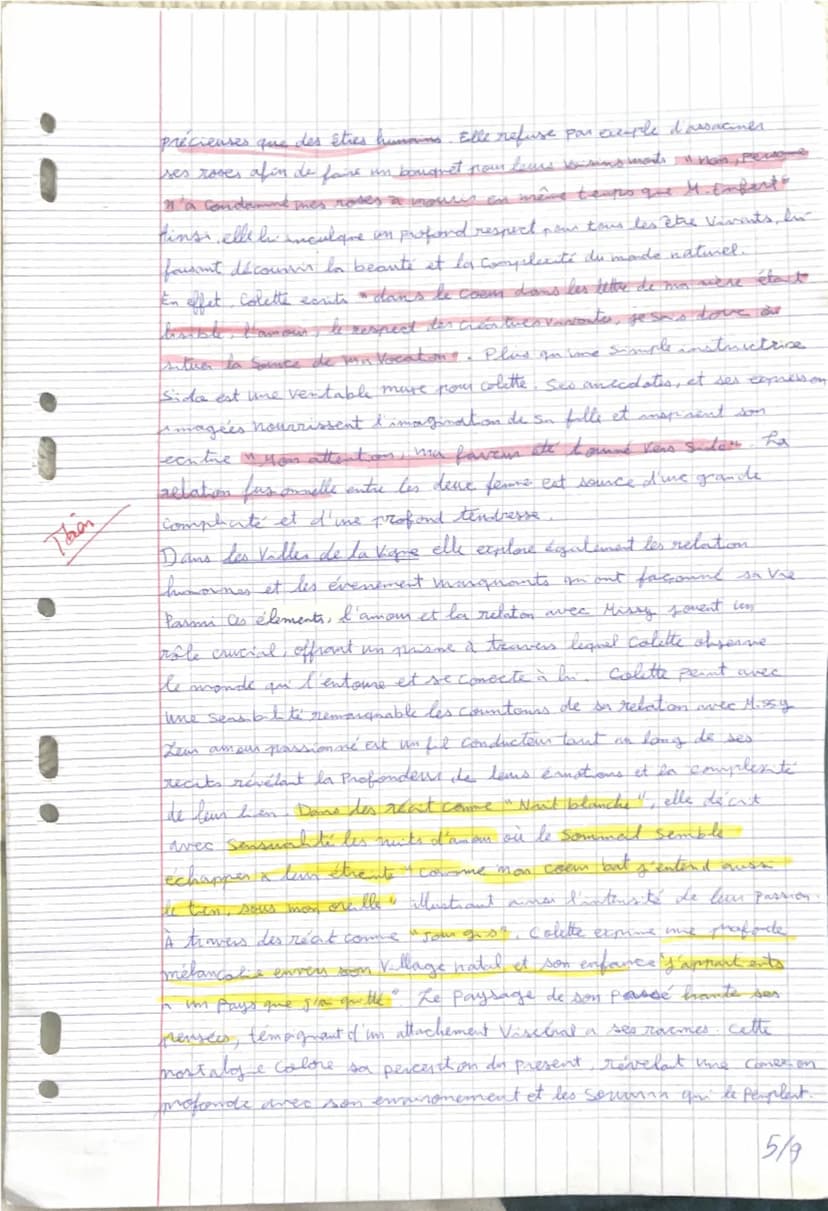 précieuses que des êtres humains. Elle refuse par exemple d'assaciner
ses roses afin de faire un bouquet pour leurs voisins morts, "Non, personne
n'a condamné mes roses à mourir en même temps que M. Enfert"
Ainsi, elle lui inculque un profond respect pour tous les être vivants, lui
faisant découvrir la beauté et la complexité du monde naturel.
En effet, Colette écrits "dans le coeur dans les lettre de ma mère était
lisible, l'amour, le respect des créatures vivantes, je sais donc où
situer la source de ma vocation". Plus qu'une simple instructrice
Sido est une veritable muse pour colette. Ses anecdotes, et ses expression
imagées nourrissent l'imagination de sa fille et inspirent son
ecritue "Mon attention, ma faveur été tourné vers Sido". La
relation fusionnelle entre les deux femme est source d'une grande
complicité et d'une profond tendresse.
Bien
Dans les Vrilles de la Vigne elle explore également les relation
humaines et les évenement marquants qui ont façonné sa vie
Parmi ces élements, l'amour et la relaton avec Missy jouent un
rôle crucial, offrant un prisme à travers lequel Colette observe
le monde qui l'entoure et se conecte à lui. Colette peint avec
une sensibilité remarquable les countours de sa relation avec Missy
Leur amour passionné est un fil conducteur tout au long de ses
recits révélant la Profondeur de leurs émotions et la complexité
de leur lien. Dans des récit comme "Nuit blanche", elle décrit
avec sensualité les nuits d'amour où le sommeil semble
echapper à leur étreinte "comme mon coeur bat j'entend aussi
le tien, sous mon oreille" illustrant ainsi l'intensité de leur passion.
À travers des récit comme "Jour gris", Colette exprime une profonde
mélancolie envers son village natal et son enfance "j'appartients
à un pays que j'ai quitté" Le paysage de son passé hante ses
pensées, témoignant d'un attachement Viscéral a ses racines. Cette
nostalgie colore sa perception du present, révelant une conexion
profonde avec son environement et les souvenir qui le peuplent.
5/9